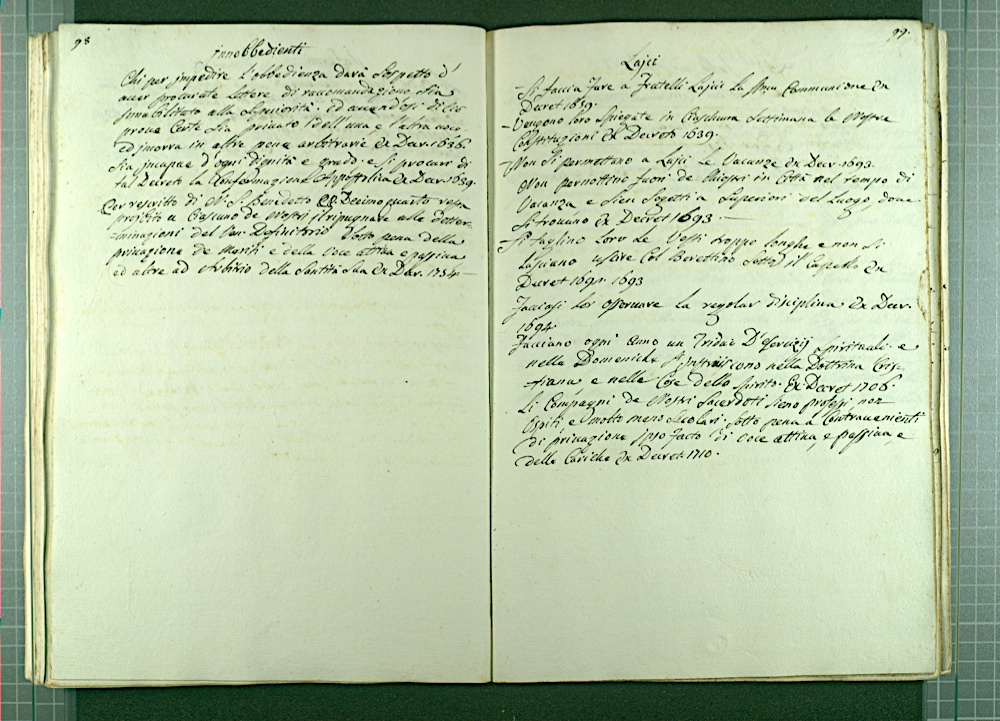 98
innobbedienti
Chi per impedire l'obbedienza darà sospetto d'
aver procurate lettere di raccomandazione sia
innabilitato alla Superiorità. ed avendosi di ciò
prova certe sia privato dell'una e l'altra voce
ed incorra in altre pene arbitrarie Ex Decr. 1636.
sia incapace d'ogni dignità e grado: e si procuri di
tal Decreto la Confermazione Appostolica Ex Decr. 1639.
Per rescritto di N. S. Benedetto XIV. Decimo quarto resta
proibito a Ciascuno de Nostri il ripugnare alle deter-
-minazioni del Ven. Definitorio sotto pena della
privazione de Meriti e della voce attiva e passiva
ed altre ad Arbitrio della Santità Sua Ex Decr. 1754.
99.
Lajci
-Si faccia fare a Fratelli Lajci la Communione Ex
Decret 1639.
-Vengono loro spiegate in Ciascheduna Settimana le Nostre
Constituzioni Ex Decreto 1639.
-Non si permettano a Lajci le Vacanze Ex Decr. 1693.
Non pernottino fuori de Chiostri in Città nel tempo di
Vacanza e sieno sogetti a Superiori del Luogo dove
si trovano Ex Decret 1693.
-Si taglino loro le Vesti troppo longhe e non si
lasciano uscire col Berettino sotto il Capello Ex
Decret 1691. 1693
Facciasi lor osservare la regolar disciplina Ex Decr.
1694.
Facciano ogni Anno un Triduo D'esercizij spirituali. e
nelle Domeniche s'instruiscono nella Dottrina Cris-
-tiana e nelle Cose dello Spirito. Ex Decret 1706.
Li Compagni de Nostri Sacerdoti sieno professi non
Ospiti e molto meno Secolari. sotto pena a Contravenienti
di privazione ipso facto di voce attiva, e passiva, e
delle Cariche Ex Decret 1710.